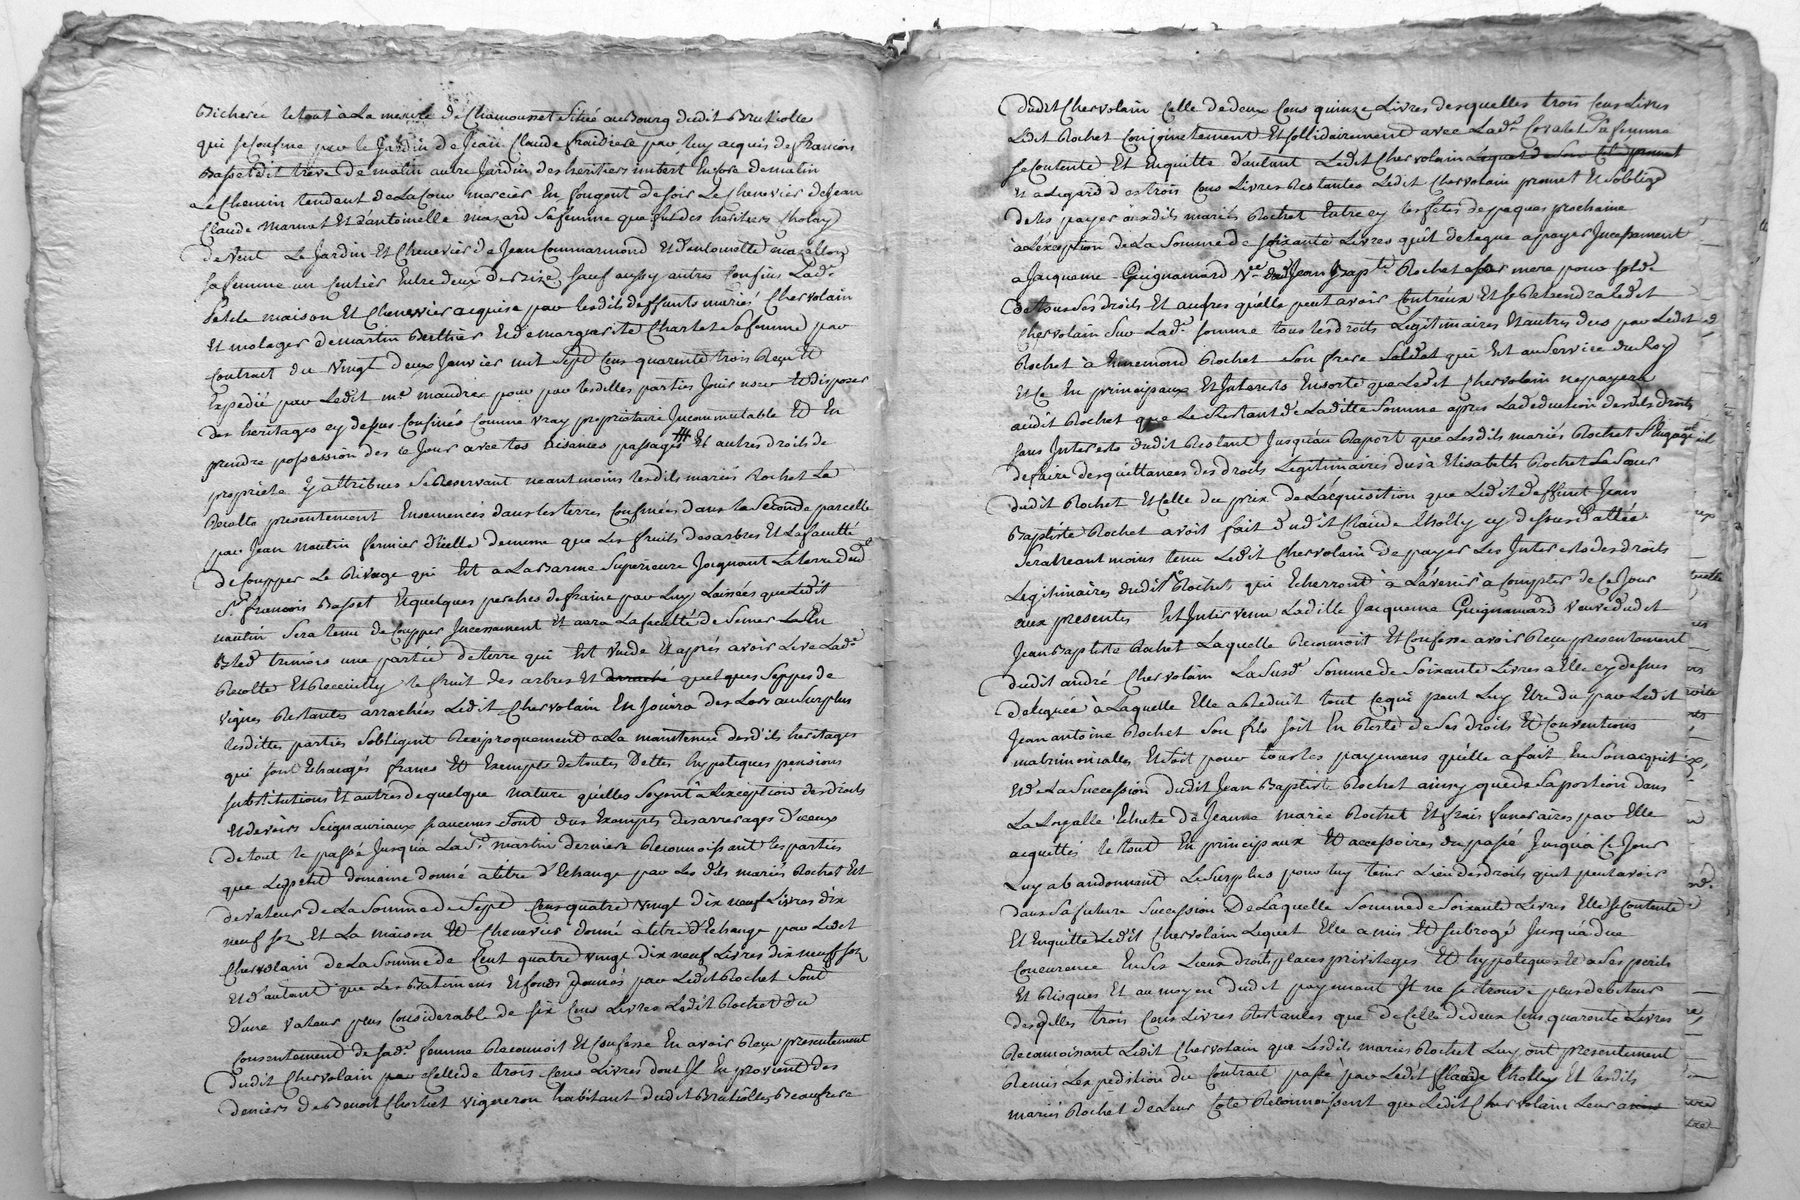 Bicherée le tout à La mesure de Chamousset Situé au Bourg dudit Brulliolles
qui se Confine par le Jardin de Jean Claude fraidiere par luy acquis de francois
Basset dit treve De matin autre Jardin des heritiers imbert Encore de matin
Le Chemin tendent de La Cour mercier En fougont de soir Le Chenevier de Jean
Claude Marnat Et d'antoinette mazard Sa femme que fut des heritiers Cholay
De vent Le Jardin Et Chenevier de Jean Commarmond Et d'antoinette mazallon
sa femme un Centier Entre deux de bize sauf aussy autres Confins Lad.e
petite maison Et Chenevier acquise par lesdits deffunts mariés Chervolain
Et molager de martin Berthier Et de marguerite Charlet Sa femme par
Contract du Vingt deux Janvier mil Sept Cens quarente trois Reçu Et
Expedié par Ledit me maudrec pour par lesdittes parties Jouir user Et disposer
des heritages cy dessus Confinés Comme vray proprietaire Incommutable Et En
prendre possession des ce Jour avec tous aisances passages # Et autres droits de
propriete y attribues se Reservant neantmoins lesdits mariés Rochet La
Recolte presentement Ensemencés dans les terres Confinées dans la Seconde parcelle
par Jean Nautin fermier d'icelle de meme que Les fruits des arbres Et La faculté
de Coupper Le Rivage qui Est a La Barme Superieure Joignant La terre dud.
Sr francois Basset Et quelques perches de fraine par Luy Laissées que Ledit
nautin Sera tenu de Coupper Incessament Et aura La faculté de Semer La En
Bled tremois une partie de terre qui Est vuide Et aprés avoir Levé Lad.e
Recolte Et Recueilly le fruit des arbres Et arraché quelques Seppes de
vignes Restantes arrachées Ledit Chervolain En Jouira des Lors au Surplus
lesdittes parties S'obligent Reciproquement a La maintenue desdits heritages
qui sont Echangés francs Et Exempts de toutes Dettes hypoteques pensions
substitutions Et autres de quelque nature quelles Soyent a L'exception des droits
Et devoirs Seigneuriaux si aucuns Sont dus Exempts des arrerages d'iceux
de tout le passé Jusqua La St martin derniere Reconnoissant les parties
que Le petit domaine donné a titre d'Echange par Les dits mariés Rochet Est
de valeur de La Somme de Sept Cens quatre vingt dix neuf Livres dix
neuf sols Et La maison Et Chenevier donné a titre d'Echange par Ledit
Chervolain de La Somme de Cent quatre vingt dix neuf Livres dix neuf sols
Et d'autant que Les Batimens Et fonds donnés par Ledit Rochet Sont
d'une valeur plus Considerable de six Cens Livres Ledit Rochet du
Consentement de Sad.e femme Reconnoit Et Confesse En avoir Reçu presentement
dudit Chervolain Celle de trois Cens Livres dont Il En provient des
deniers de Benoit Chorliet vigneron habitant dudit Brulliolles Beaufrere
dudit Chervolain Celle de deux Cens quinze Livres desquelles trois Cens Livres
Ledit Rochet Conjointement Et Sollidairement avec Lad.e Covalet Sa femme
se Contente Et En quitte d'autant Ledit Chervolain Lequel de Son Coté promet
Et a Legard des trois Cens Livres Restantes Ledit Chervolain promet Et S'oblige
de les payer auxdits mariés Rochet Entre cy les fetes de paques prochaine
a L'exception de La Somme de Soixante Livres qu'il delegue a payer Incessament
a Jacqueme Guignamard Ve dud. Jean Bapte Rochet Sa mere pour solde
de tous Ses droits Et autres qu'elle peut avoir Contr'eux Et se Retiendra Ledit
Chervolain Sur Lad.e Somme tous les droits Legitimaires Et autres dus par Ledit
Rochet à Annemond Rochet Son frere Soldat qui Est au Service du Roy
Et Ce En principaux Et Interests En sorte que Ledit Chervolain ne payera
audit Rochet que Le Restant de Laditte Somme apres La deduction desdits droits
sans Interests dudit Restant Jusqu'au Raport que Lesdits mariés Rochet S'engagent
de faire des quittances des droits Legitimaires dus à Elisabeth Rochet Sa Sœur
dudit Rochet Et Celle du prix de L'acquisition que Ledit deffunt Jean
Baptiste Rochet avoit fait dudit Claude Cholley cy dessus dattée
Sera Neantmoins tenu Ledit Chervolain de payer Les Interests des droits
Legitimaires dudit Rochet qui Echerront à L'avenir a Compter de Ce Jour
aux presentes Est Intervenu Laditte Jacqueme Guignamard veuve dudit
Jean Baptiste Rochet Laquelle Reconnoit Et Confesse avoir Reçu presentement
dudit andré Chervolain La Susd.e Somme de Soixante Livres a Elle cy dessus
deleguée à Laquelle Elle a Reduit tout Ce qui peut Luy Etre du par Ledit
Jean antoine Rochet Son fils soit En Reste de Ses droits Et Conventions
matrimoniales Et Soit pour tous les payemens qu'elle a fait En Son acquit
Et de La Succession dudit Jean Baptiste Rochet ainsy que de Sa portion dans
La Loyalle Echete de Jeanne marie Rochet Et frais funeraires par Elle
acquittés le tout En principaux Et accessoires du passé Jusqu'a Ce Jour
Luy abandonnant Le Surplus pour luy tenir Lieu des droits qu'il peut avoir
dans Sa future Succession De Laquelle Somme de Soixante Livres Elle se Contente
Et En quitte Ledit Chervolain Lequel Elle a mis Et Subrogé Jusqu'a due
Concurence En Ses Lieux droits places privileges Et hypoteques Et a Ses perils
Et Risques Et au moyen dudit payement Il ne se trouve plus debiteur
desdites trois Cens Livres Restantes que de Celle de deux Cens quarente Livres
Reconnoissant Ledit Chervolain que Lesdits mariés Rochet Luy ont presentement
Remis L'expedition du Contract passé par Ledit Claude Cholley Et lesdits
mariés Rochet de Leur Coté Reconnoissent que Ledit Chervolain Leur